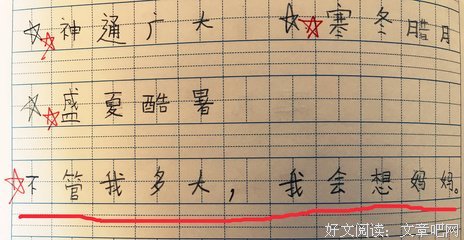 神通广大 寒冬腊月
盛夏酷暑
不管我多大，我会想妈妈。
好文阅读：文章吧网